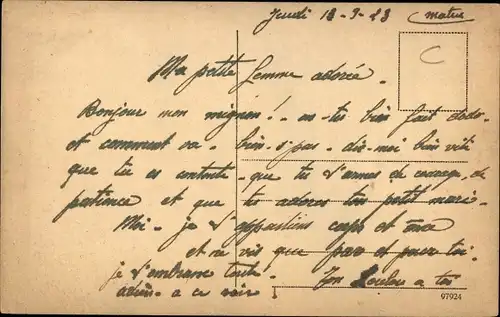 Jeudi 18-3-23 matin
C
Ma petite femme adorée.
Bonjour mon mignon!.. as-tu bien fait dodo.
et comment va. bien-s'pas. dis-moi bien vite
que tu es contente. que tu t'armes de courage, de
patience et que tu adores ton petit mari.
Moi. je t'appartiens corps et âme
et ne vis que par et pour toi.
je t'embrasse toute. Ton Loulou a toi
adieu. a ce soir!
97924